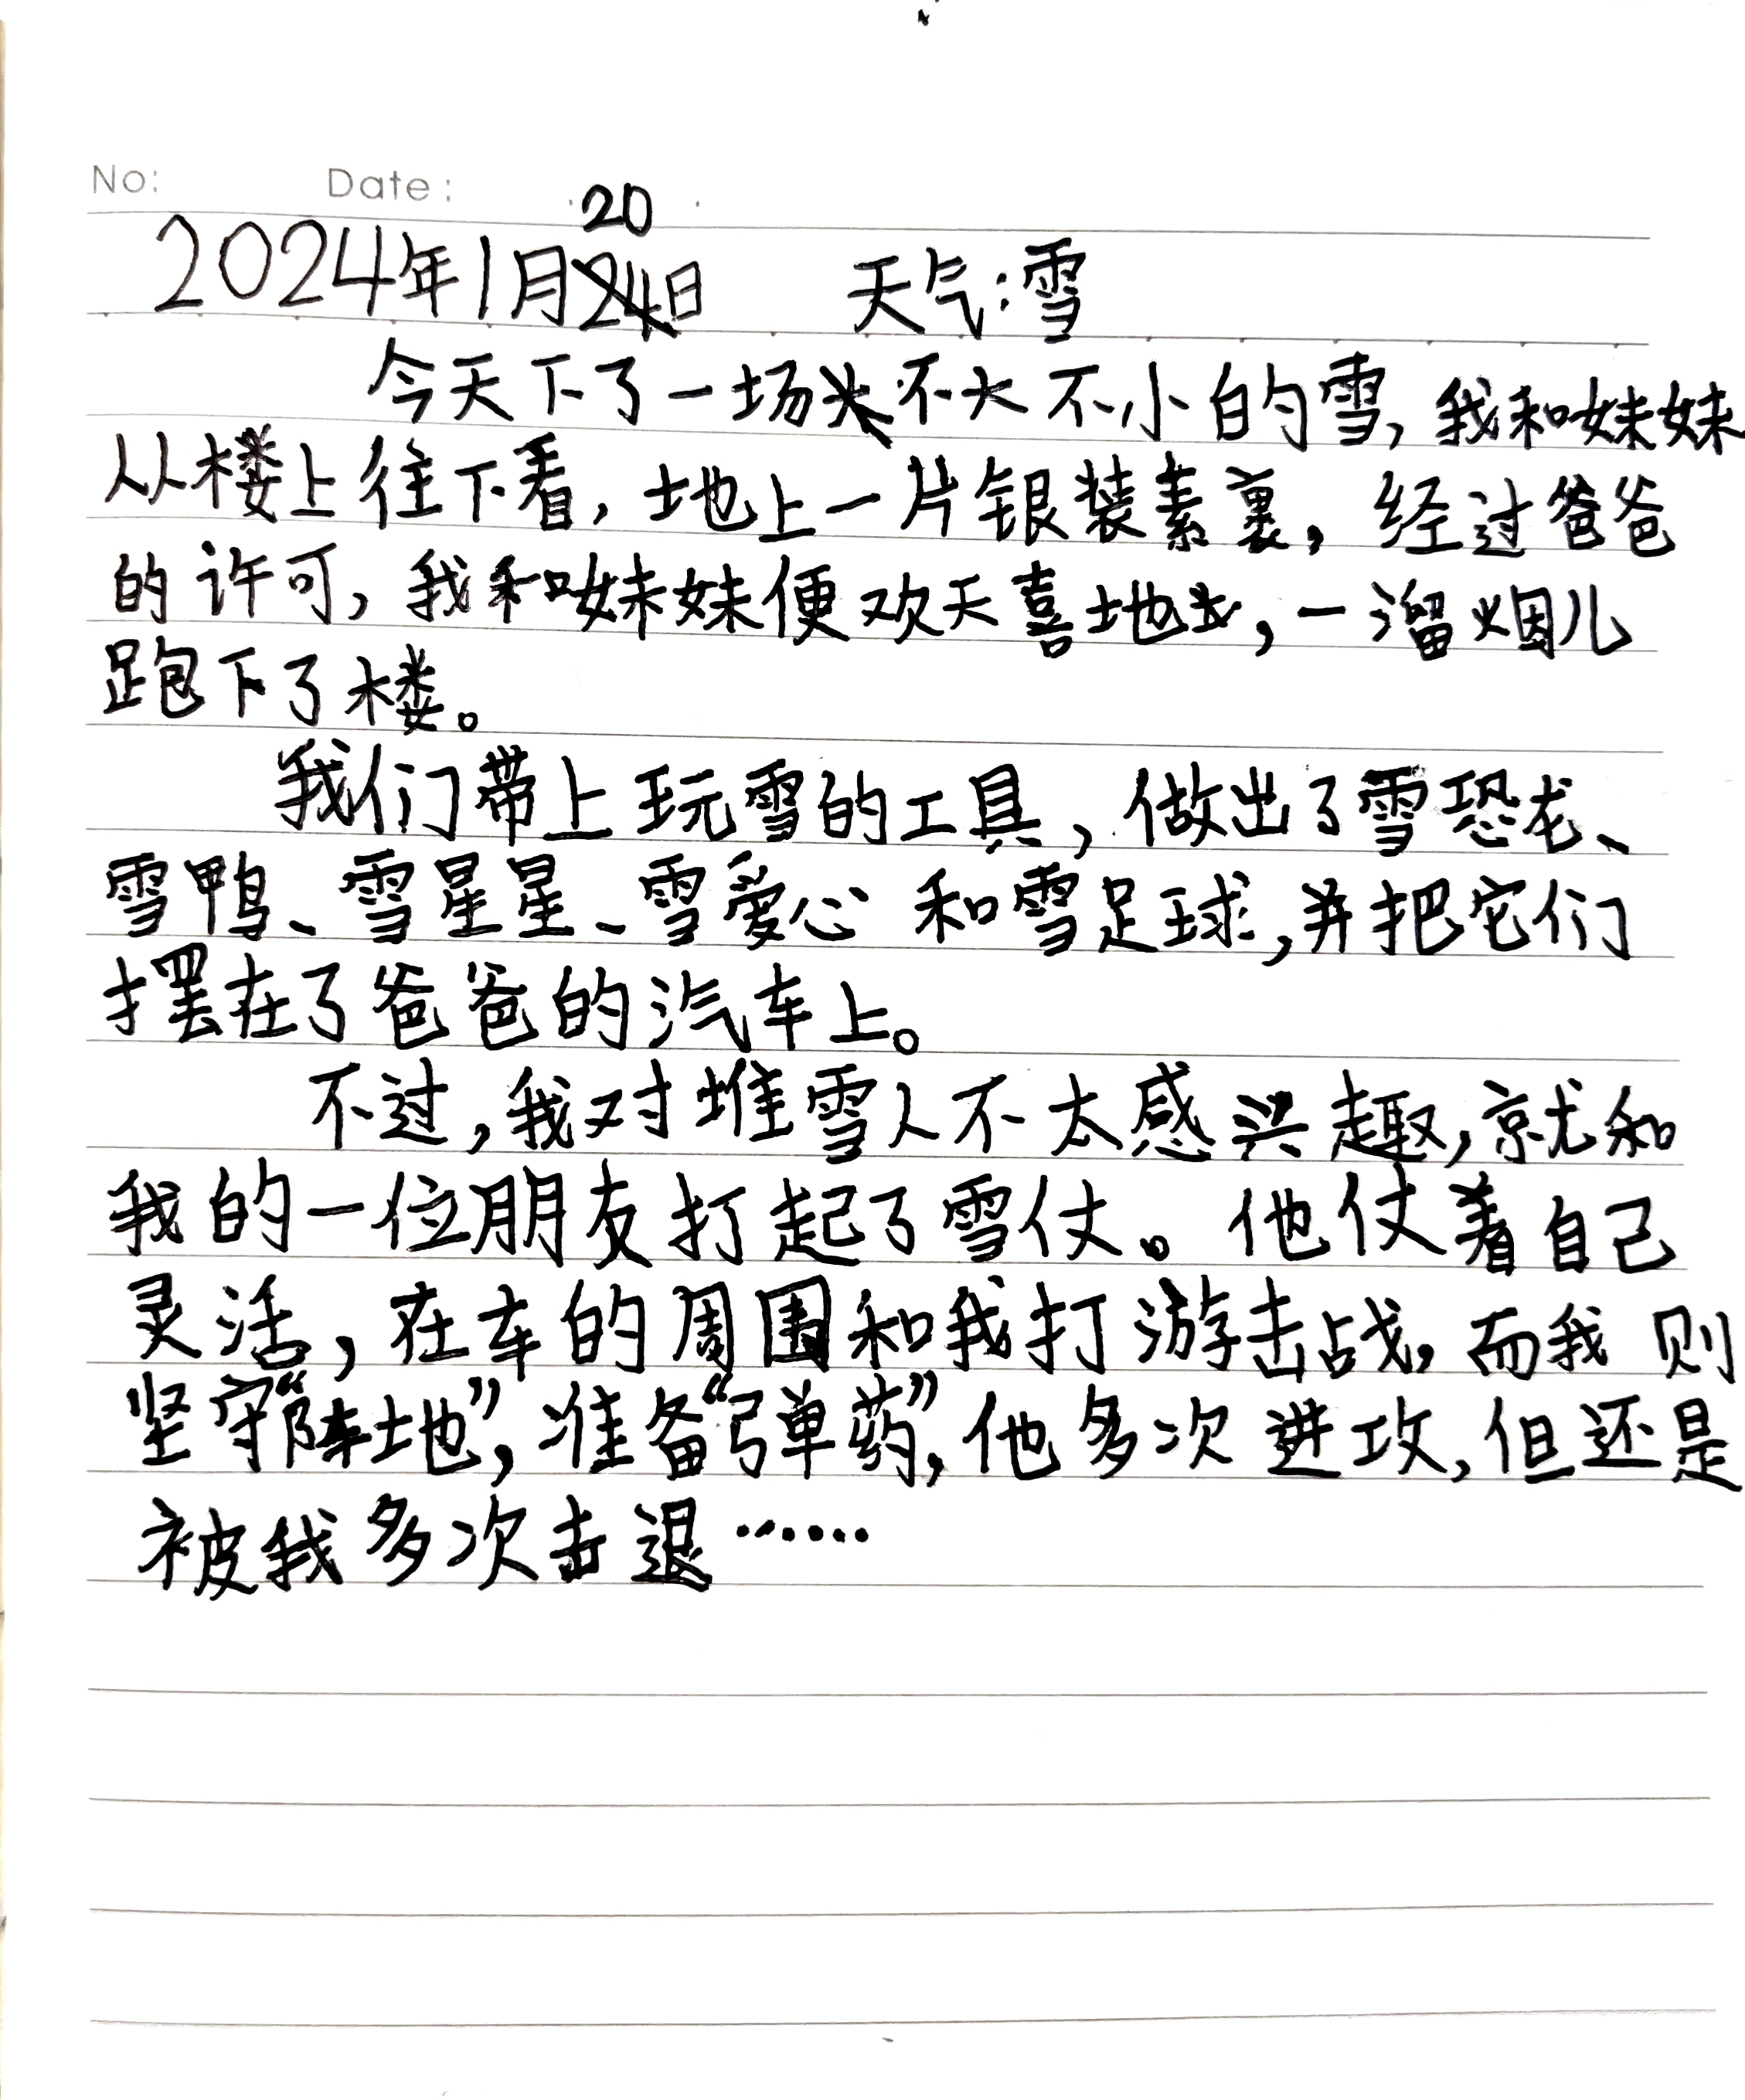 No: Date:
20
2024年1月日 天气:雪
今天下了一场不大不小的雪,我和妹妹
从楼上往下看,地上一片银装素裹,经过爸爸
的许可,我和妹妹便欢天喜地,一溜烟儿
跑下了楼。
我们带上玩雪的工具,做出了雪恐龙、
雪鸭、雪星星、雪爱心和雪足球,并把它们
摆在了爸爸的汽车上。
不过,我对堆雪人不太感兴趣,就和
我的一位朋友打起了雪仗。他仗着自己
灵活,在车的周围和我打游击战,而我则
坚守“阵地”,准备“弹药”,他多次进攻,但还是
被我多次击退……